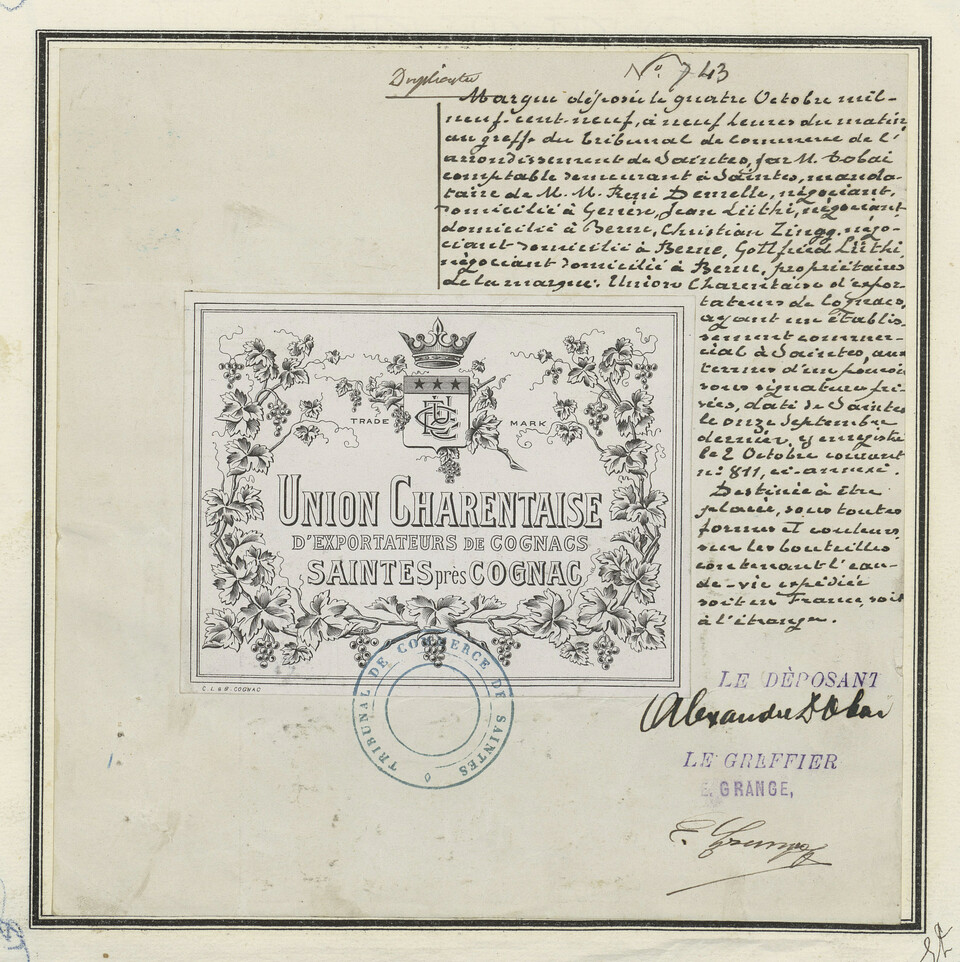 Duplicata
N° 743
Marque déposée le quatre Octobre mil-
neuf-cent-neuf, à neuf heures du matin,
au greffe du Tribunal de Commerce de l'
arrondissement de Saintes, par M. Dobai
comptable demeurant à Saintes, manda-
taire de M. M. René Demelle, négociant,
domicilié à Genève, Jean Lüthi, négociant
domicilié à Berne, Christian Zingg, négo-
ciant domicilié à Berne, Gottfried Lüthi,
négociant domicilié à Berne, propriétaires
de la marque: Union Charentaise d'expor-
tateurs de Cognacs,
ayant un établis-
sement commer-
cial à Saintes, aux
termes d'un pouvoir
sous signatures pri-
vées, daté de Saintes
le onze Septembre
dernier, & enregistré
le 2 Octobre courant
n° 811, ci-annexé.
Destinée à être
placée, sous toutes
formes et couleurs,
sur les bouteilles
contenant l'eau-
de-vie expédiée
soit en France, soit
à l'étranger.
TRADE MARK
UNION CHARENTAISE
D'EXPORTATEURS DE COGNACS
SAINTES près COGNAC
C. L. & Cie. COGNAC
TRIBUNAL DE COMMERCE DE SAINTES
LE DÉPOSANT
Alexandre Dobai
LE GREFFIER
E. GRANGE,
E. Grange